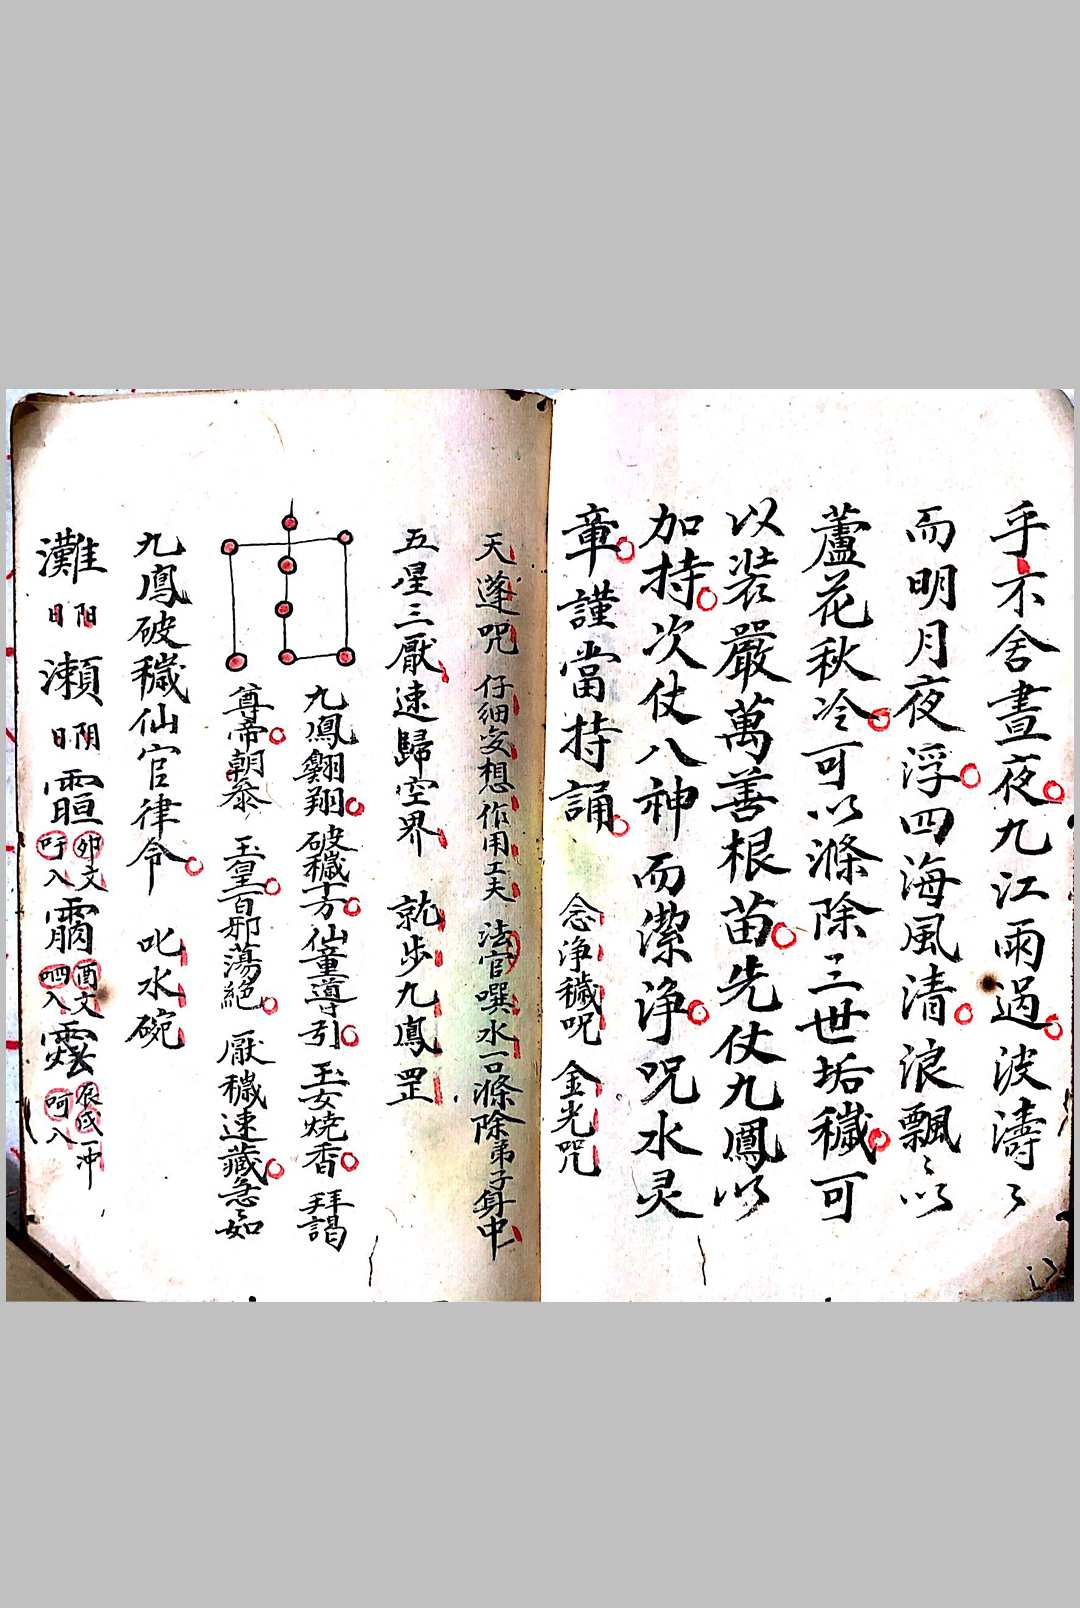 乎不舍晝夜九江雨過波濤〻
而明月夜浮四海風清浪飄〻以
蘆花秋冷可以滌除三世垢穢可
以裝嚴萬善根苗先仗九鳳以
加持次仗八神而潔淨咒水灵
章謹當持誦 念淨穢呪 金光咒
天蓬咒 仔細变想作用工夫 法官噀水一口滌除弟子身中
五星三厭速歸空界 就步九鳳罡
九鳳翱翔破穢十方仙童導引玉女燒香拜謁
尊帝朝參玉皇百邪蕩絕厭穢速藏急〻如
九鳳破穢仙官律令 叱水碗
灘 日 阳 瀬 日 阴 卯文 吁入 酉文 呬入 辰戌一冲 呵入